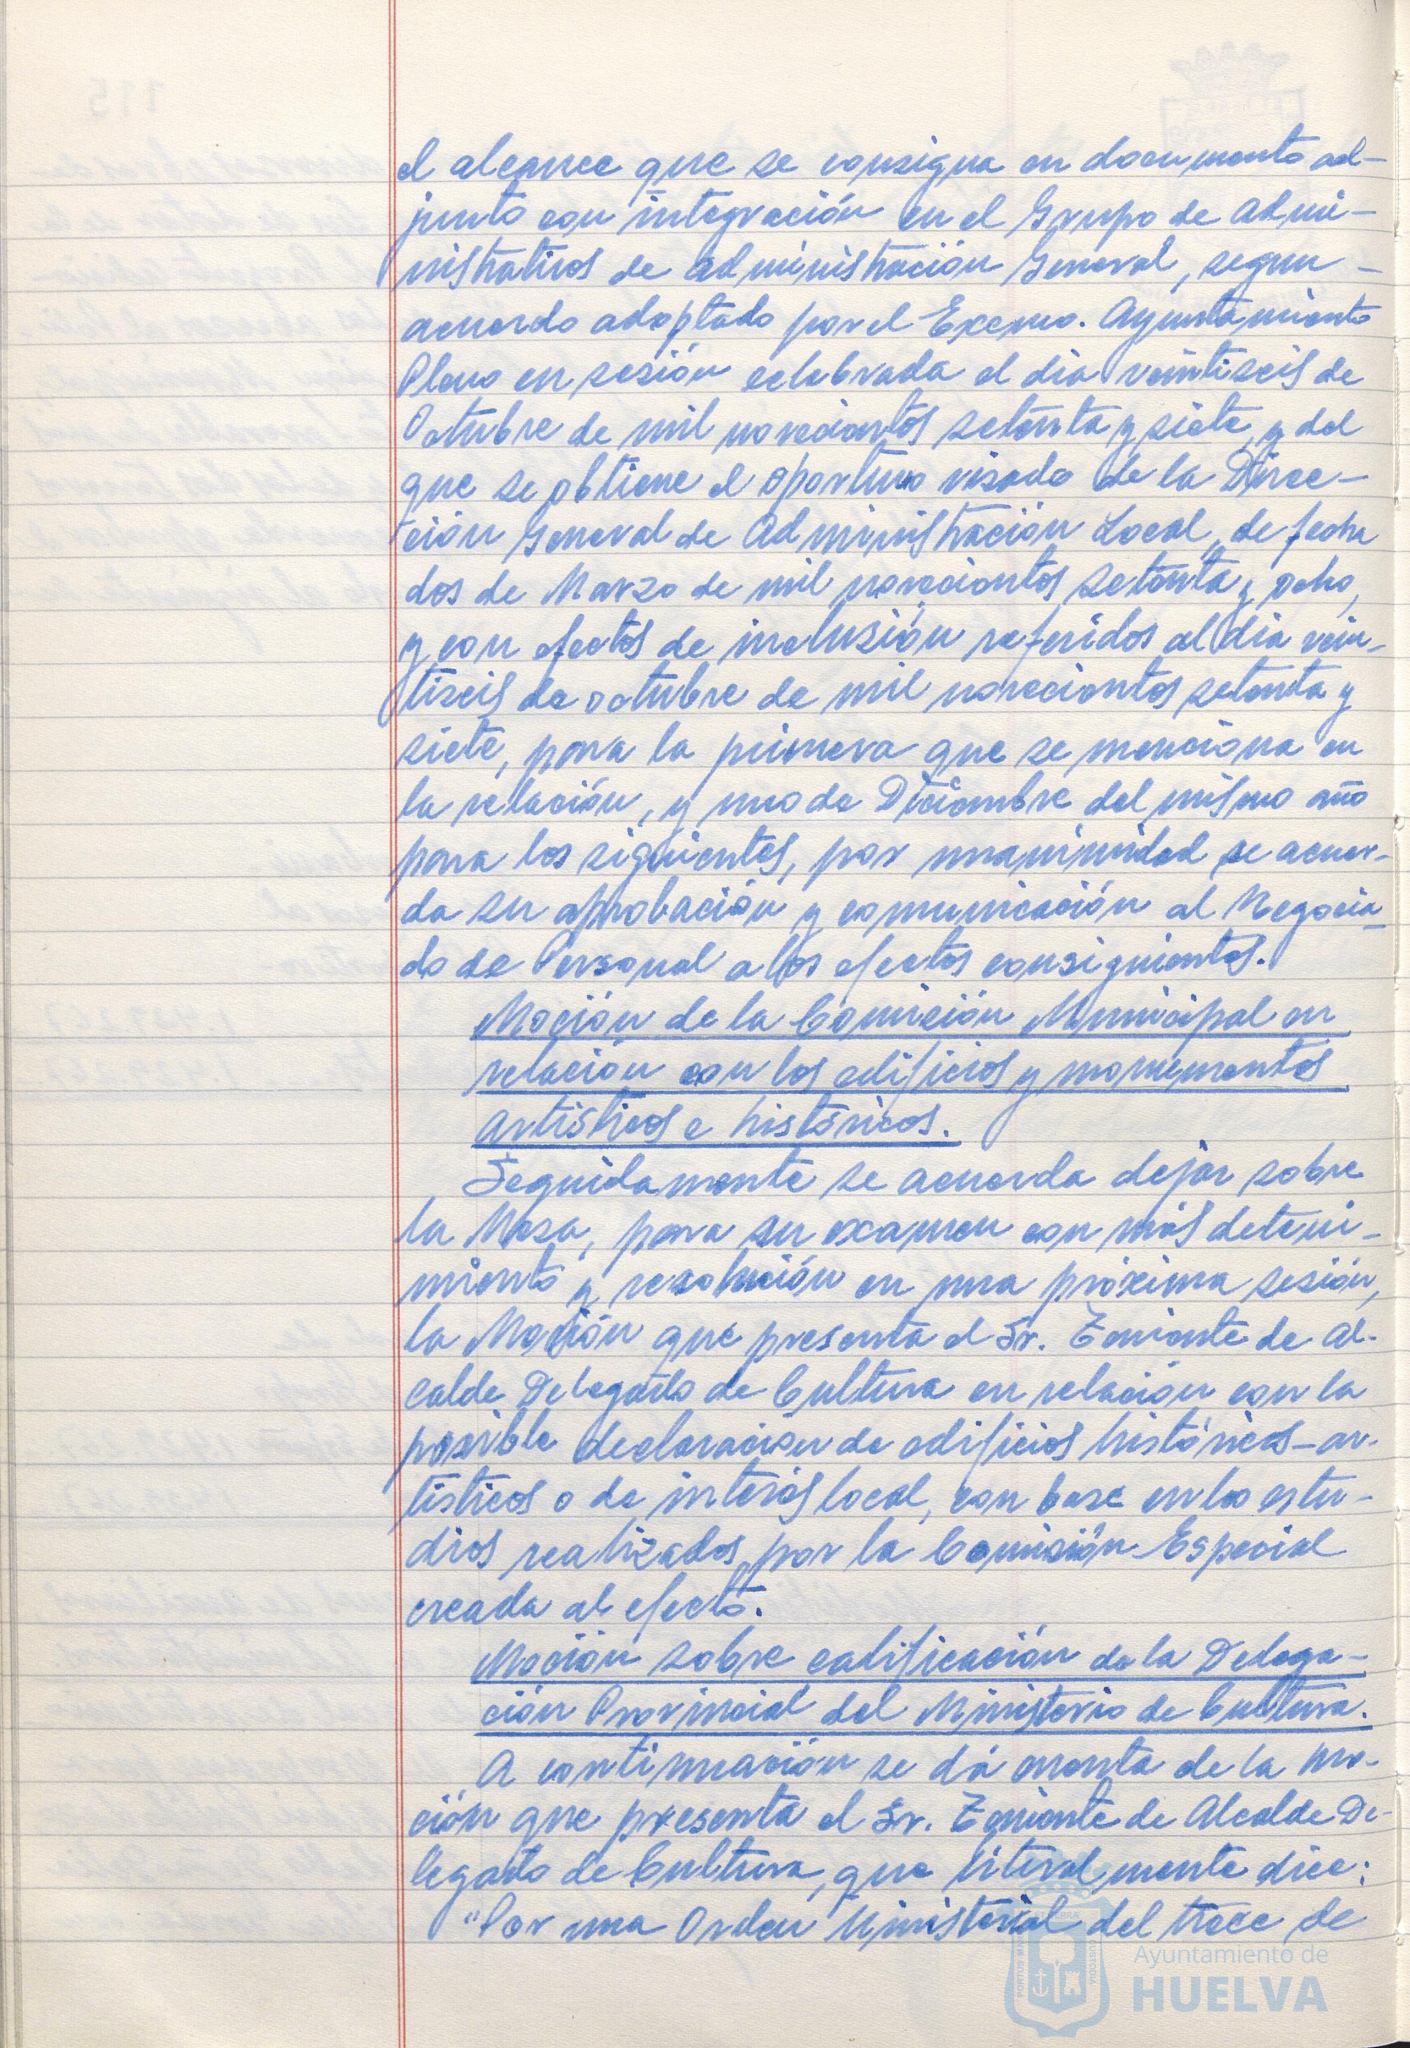 el alcance que se consigna en documento ad-
junto con integración en el Grupo de Admi-
nistrativos de Administración General, segun
acuerdo adoptado por el Excmo. Ayuntamiento
Pleno en sesión celebrada el dia veintiseis de
Octubre de mil novecientos setenta y siete, y del
que se obtiene el oportuno visado de la Direc-
ción General de Administración Local, de fecha
dos de Marzo de mil novecientos setenta y ocho,
y con efectos de inclusión referidos al dia vein-
tiseis de octubre de mil novecientos setenta y
siete, para la primera que se menciona en
la relación, y uno de Diciembre del mismo año
para los siguientes, por unanimidad se acuer-
da su aprobación y comunicación al Negocia-
do de Personal a los efectos consiguientes.
Moción de la Comisión Municipal en
relación con los edificios y monumentos
artísticos e históricos.
Seguidamente se acuerda dejar sobre
la Mesa, para su examen con más deteni-
miento y resolución en una próxima sesión,
la Moción que presenta el Sr. Teniente de Al-
calde Delegado de Cultura en relación con la
posible declaración de edificios históricos-ar-
tísticos o de interés local, con base en los estu-
dios realizados por la Comisión Especial
creada al efecto.
Moción sobre calificación de la Delega-
ción Provincial del Ministerio de Cultura.
A continuación se dá cuenta de la mo-
ción que presenta el Sr. Teniente de Alcalde De-
legado de Cultura, que literalmente dice:
"Por una Orden Ministerial del trece de
Ayuntamiento de
HUELVA